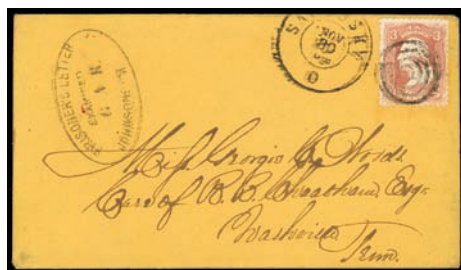 PRISONERS LETTER
EXAMINED
JOHNSON'S IS.
SANDUSKY
O
3 3
Miss Georgie
Care of R. B. Cheatham Esqr
Nashville
Tenn.